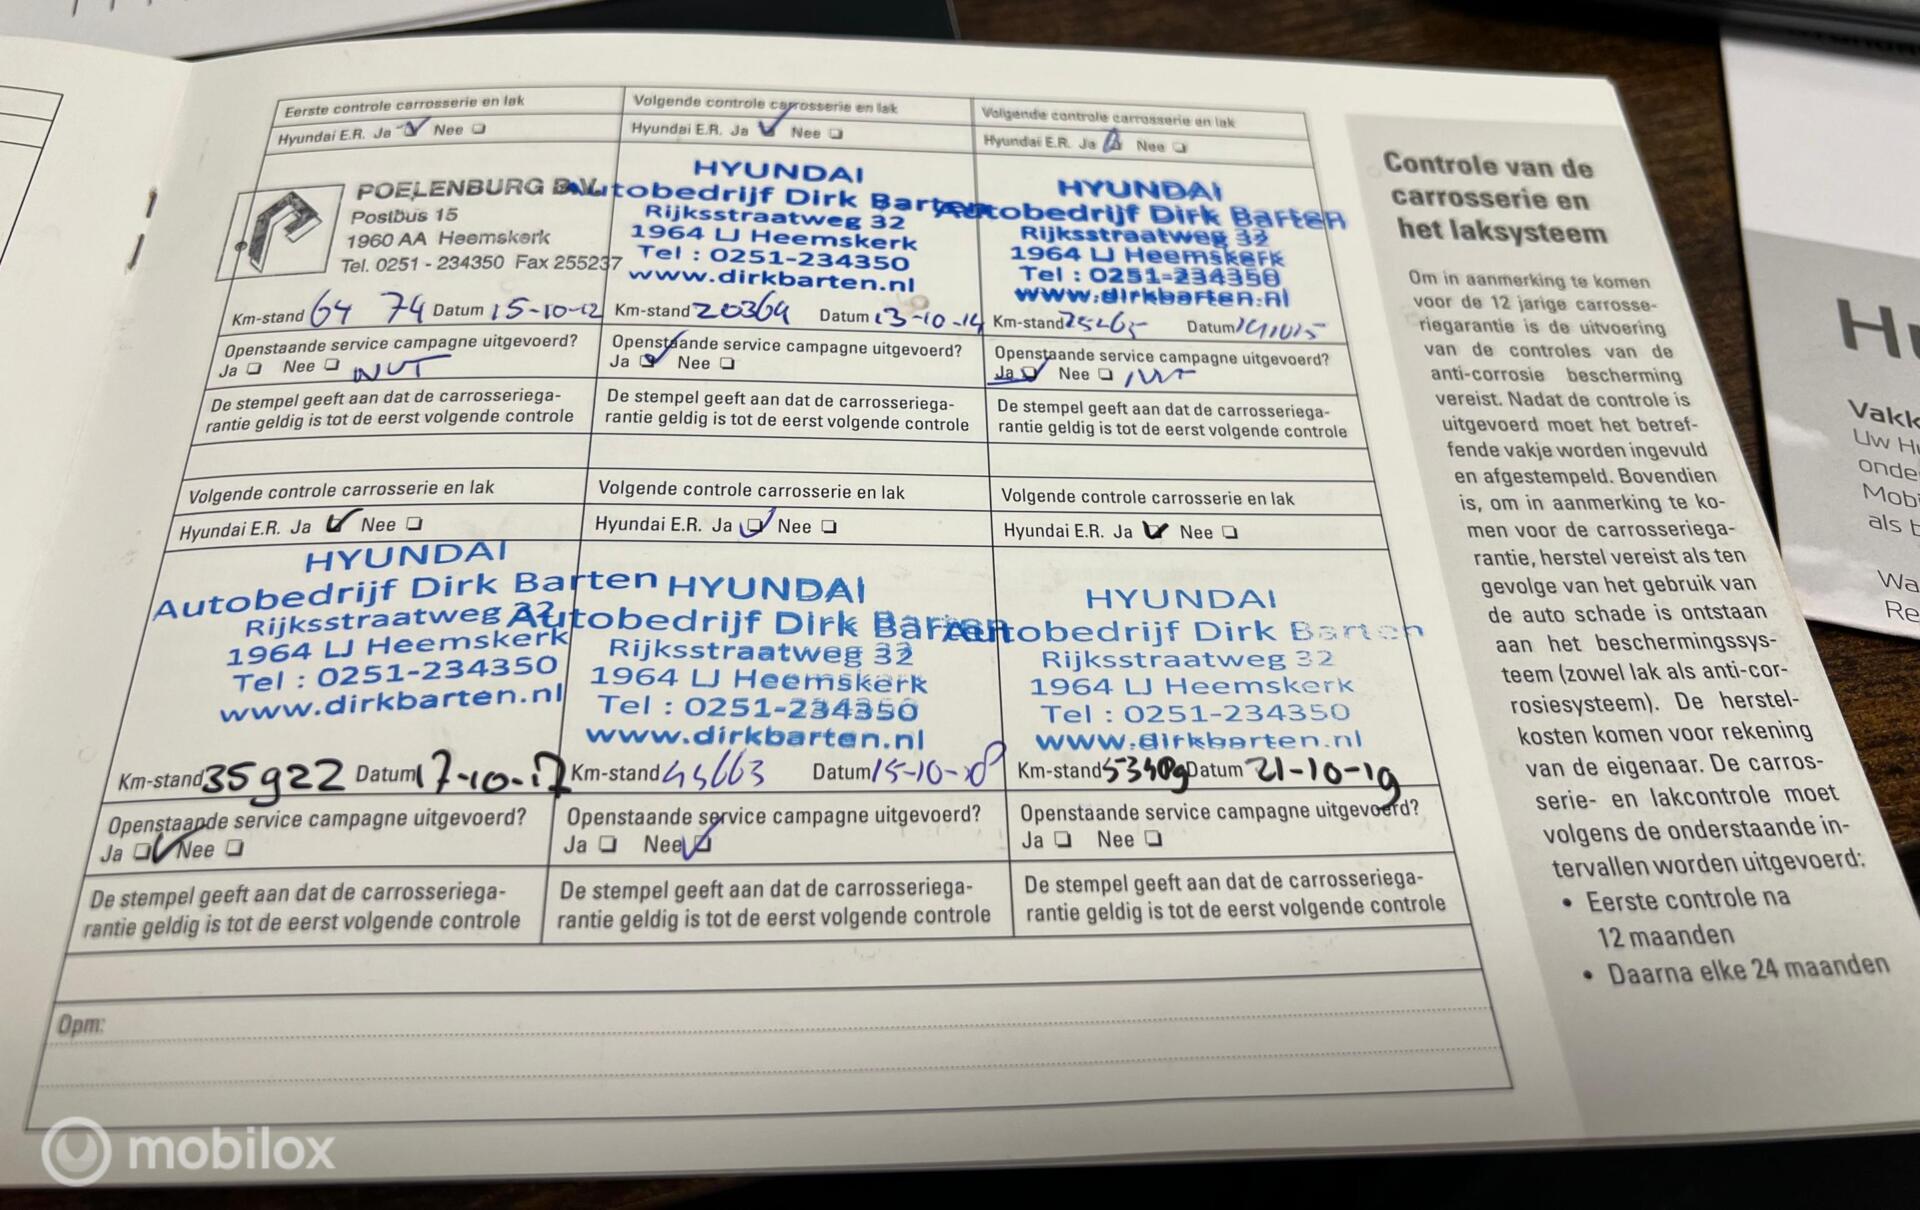 Eerste controle carrosserie en lak
Hyundai E.R. Ja Nee
POELENBURG B.V.
Postbus 15
1960 AA Heemskerk
Tel. 0251 - 234350 Fax 255237
Km-stand 64 74 Datum 15-10-12
Openstaande service campagne uitgevoerd?
Ja Nee NVT
De stempel geeft aan dat de carrosseriega-
rantie geldig is tot de eerst volgende controle
Volgende controle carrosserie en lak
Hyundai E.R. Ja Nee
HYUNDAI
Autobedrijf Dirk Barten
Rijksstraatweg 32
1964 LJ Heemskerk
Tel : 0251-234350
www.dirkbarten.nl
Km-stand 20369 Datum 13-10-14
Openstaande service campagne uitgevoerd?
Ja Nee
De stempel geeft aan dat de carrosseriega-
rantie geldig is tot de eerst volgende controle
Volgende controle carrosserie en lak
Hyundai E.R. Ja Nee
HYUNDAI
Autobedrijf Dirk Barten
Rijksstraatweg 32
1964 LJ Heemskerk
Tel : 0251-234350
www.dirkbarten.nl
Km-stand Datum
Openstaande service campagne uitgevoerd?
Ja Nee NVT
De stempel geeft aan dat de carrosseriega-
rantie geldig is tot de eerst volgende controle
Volgende controle carrosserie en lak
Hyundai E.R. Ja Nee
HYUNDAI
Autobedrijf Dirk Barten
Rijksstraatweg 32
1964 LJ Heemskerk
Tel : 0251-234350
www.dirkbarten.nl
Km-stand 35922 Datum 17-10-17
Openstaande service campagne uitgevoerd?
Ja Nee
De stempel geeft aan dat de carrosseriega-
rantie geldig is tot de eerst volgende controle
Volgende controle carrosserie en lak
Hyundai E.R. Ja Nee
HYUNDAI
Autobedrijf Dirk Barten
Rijksstraatweg 32
1964 LJ Heemskerk
Tel : 0251-234350
www.dirkbarten.nl
Km-stand Datum 15-10-18
Openstaande service campagne uitgevoerd?
Ja Nee
De stempel geeft aan dat de carrosseriega-
rantie geldig is tot de eerst volgende controle
Volgende controle carrosserie en lak
Hyundai E.R. Ja Nee
HYUNDAI
Autobedrijf Dirk Barten
Rijksstraatweg 32
1964 LJ Heemskerk
Tel : 0251-234350
www.dirkbarten.nl
Km-stand Datum 21-10-19
Openstaande service campagne uitgevoerd?
Ja Nee
De stempel geeft aan dat de carrosseriega-
rantie geldig is tot de eerst volgende controle
Opm:
Controle van de
carrosserie en
het laksysteem
Om in aanmerking te komen
voor de 12 jarige carrosse-
riegarantie is de uitvoering
van de controles van de
anti-corrosie bescherming
vereist. Nadat de controle is
uitgevoerd moet het betref-
fende vakje worden ingevuld
en afgestempeld. Bovendien
is, om in aanmerking te ko-
men voor de carrosseriega-
rantie, herstel vereist als ten
gevolge van het gebruik van
de auto schade is ontstaan
aan het beschermingssys-
teem (zowel lak als anti-cor-
rosiesysteem). De herstel-
kosten komen voor rekening
van de eigenaar. De carros-
serie- en lakcontrole moet
volgens de onderstaande in-
tervallen worden uitgevoerd:
• Eerste controle na
12 maanden
• Daarna elke 24 maanden
Vakk
Uw H
onde
Mobi
als b
Wa
Re
mobilox